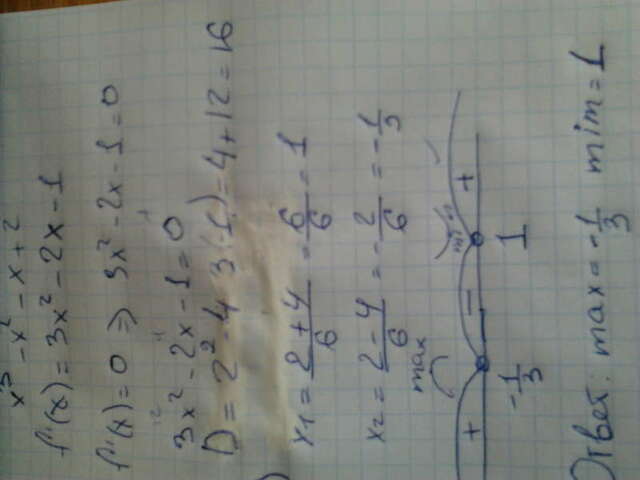 x³ - x² - x + 2
f'(x) = 3x² - 2x - 1
f'(x) = 0 ⇒ 3x² - 2x - 1 = 0
3x² - 2x - 1 = 0
D = 2² - 4·3·(-1) = 4 + 12 = 16
x1 = 2+4/6 = 6/6 = 1
x2 = 2-4/6 = -2/6 = -1/3
max min
+ - +
-1/3 1
Ответ: max = -1/3 mim = 1